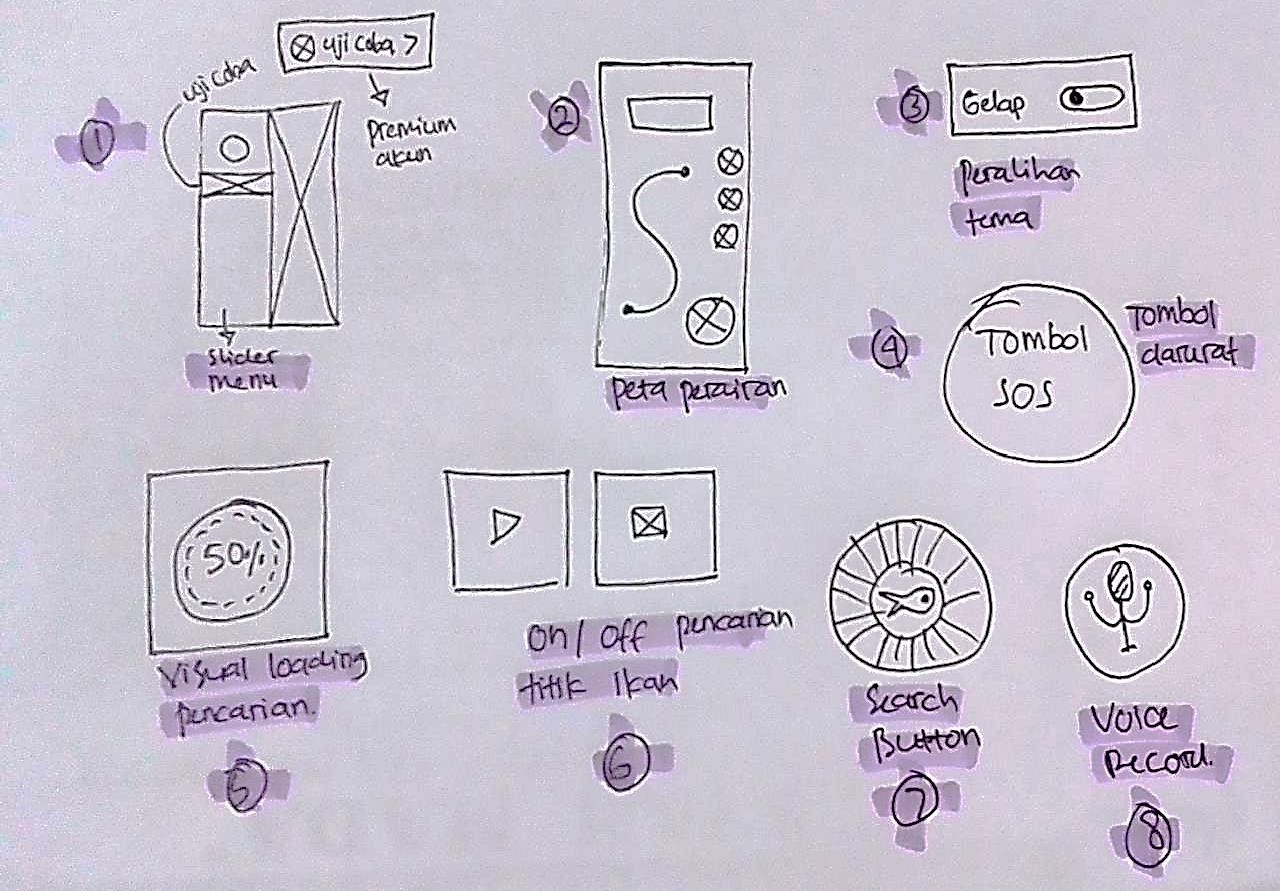 uji coba >
uji coba
Premium
akun
1
slider
menu
2
peta perairan
3
Gelap
Peralihan
tema
4
TOMBOL
SOS
TOMBOL
darurat
50%
Visual loading
pencarian.
5
On / Off pencarian
titik Ikan
6
Search
Button
7
Voice
Record.
8